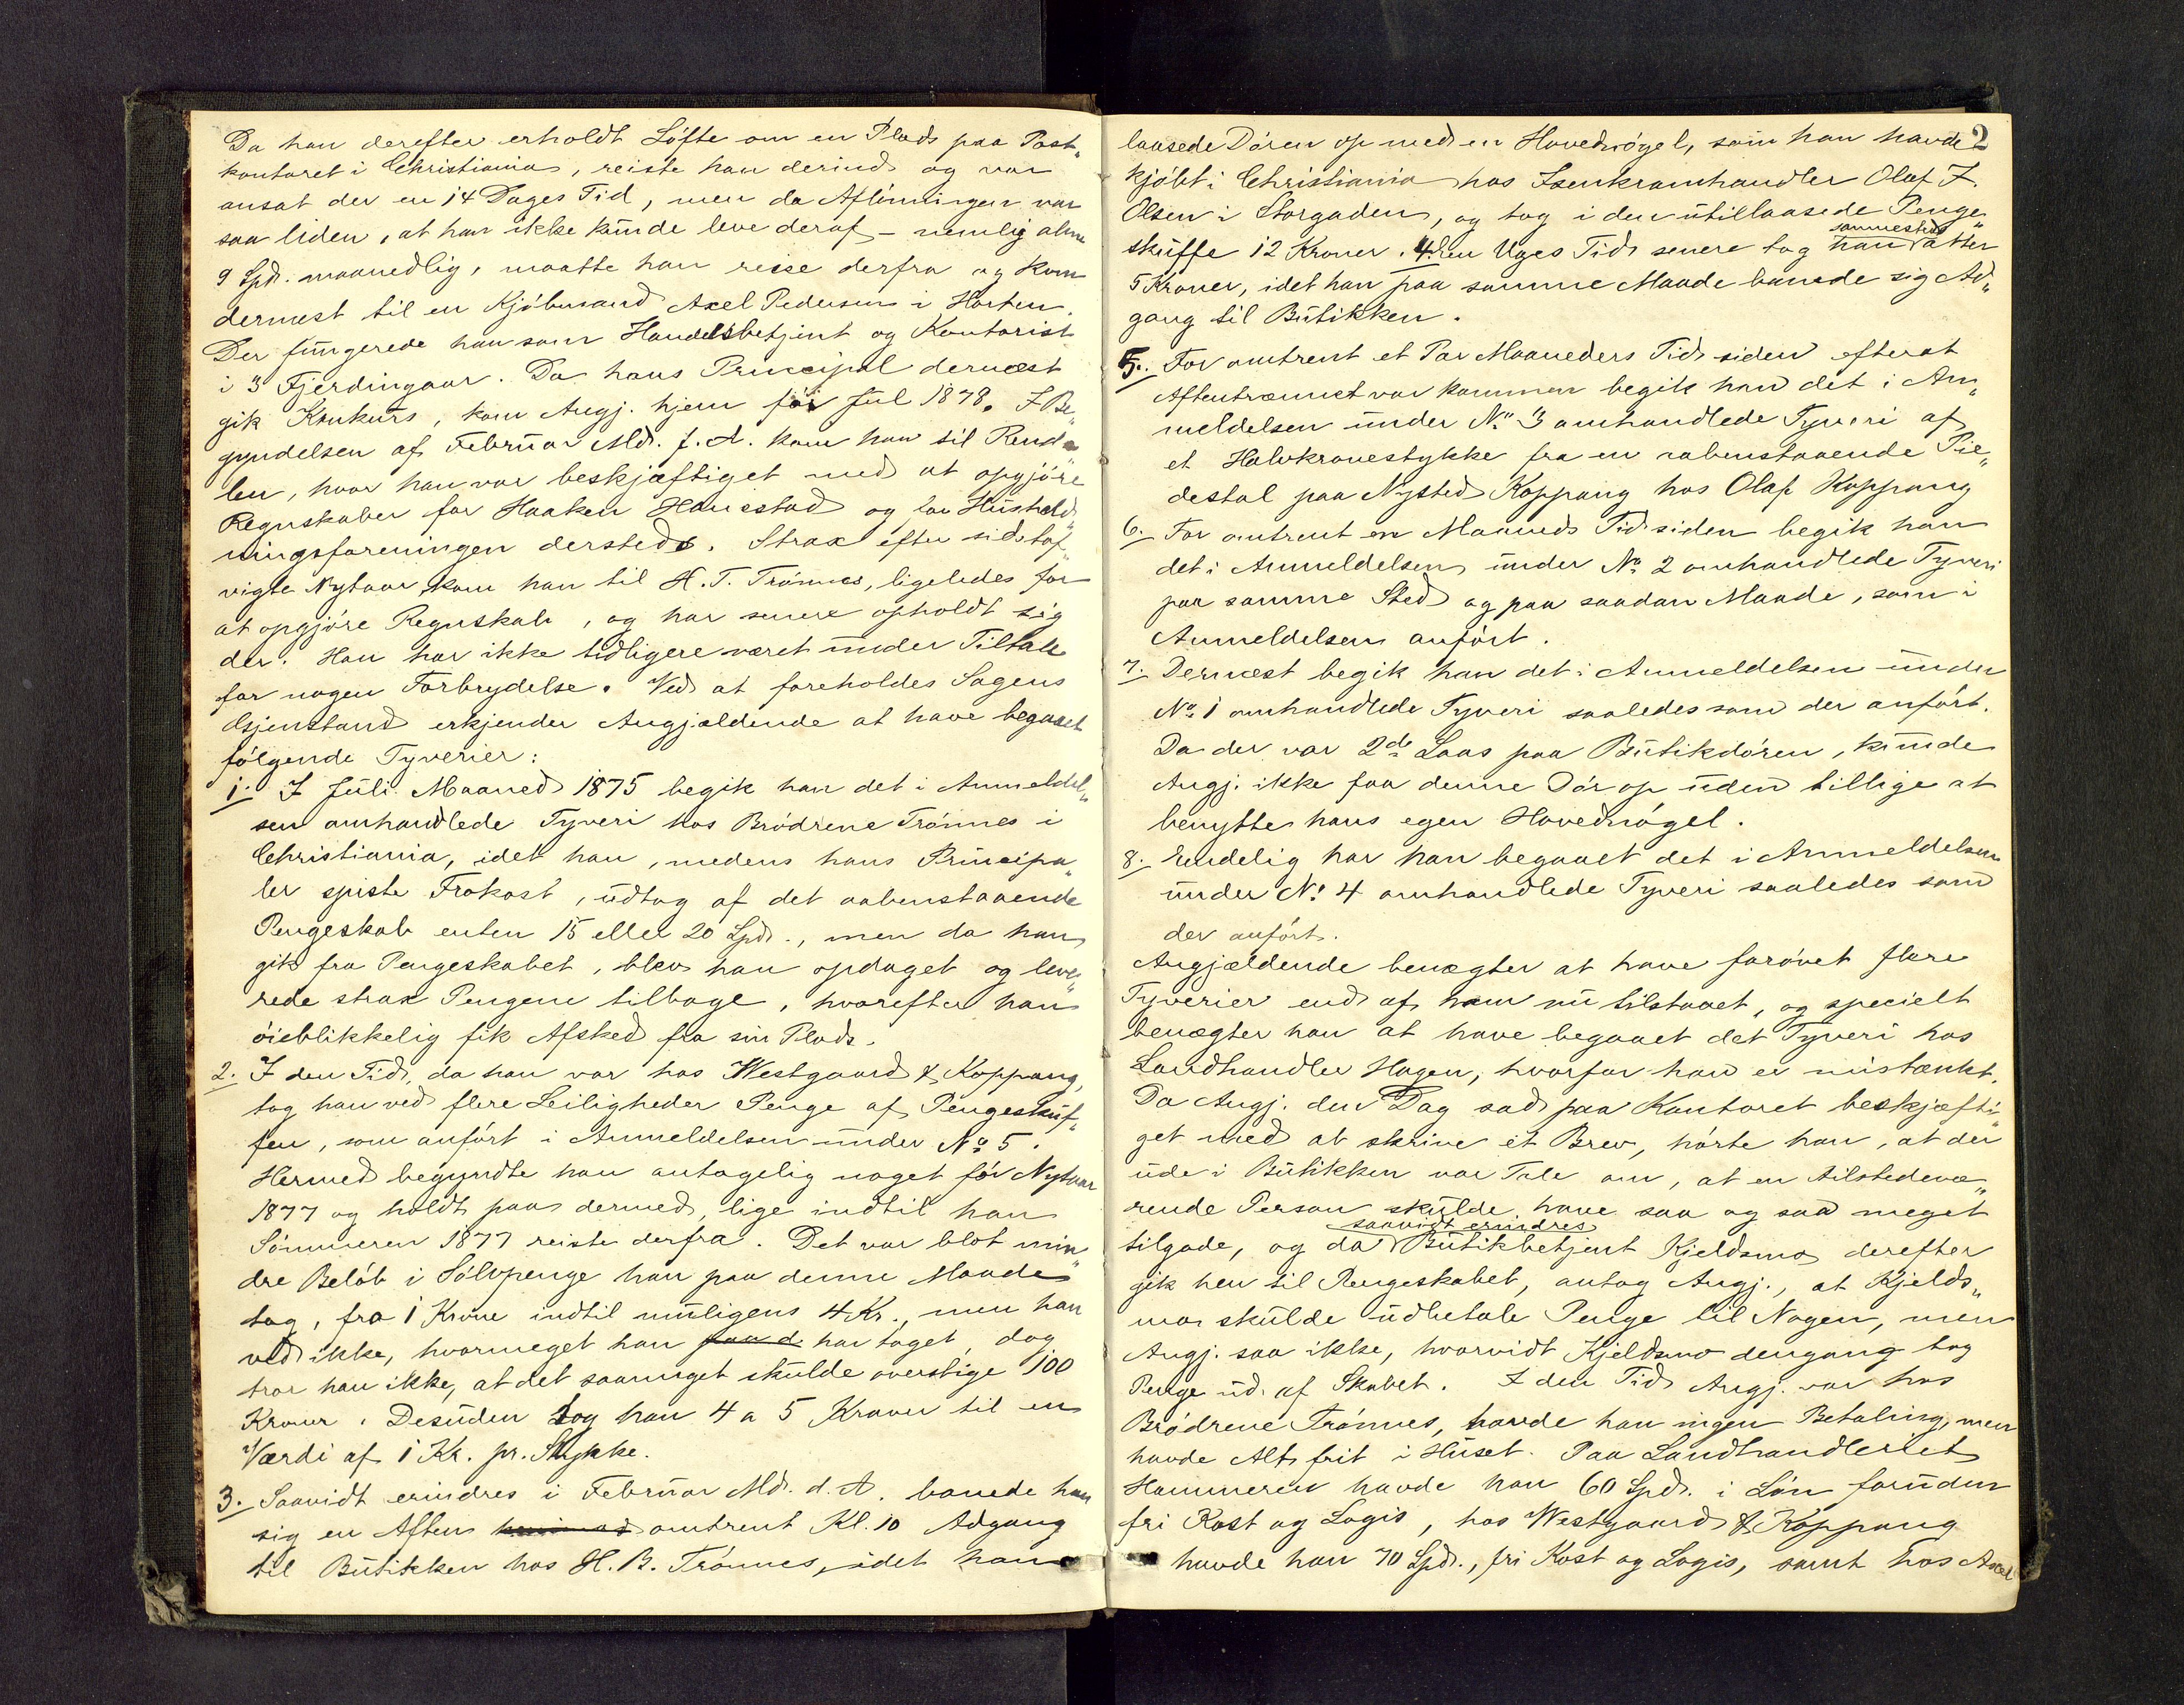 Da han derefter erholdt Løfte om en Plads paa Post„
kontoret i Christiania, reiste han derind og var
ansat der en 14 Dages Tid, men da Aflønningen var
saa liden, at han ikke kunde leve deraf – nemlig alene
9 Spd. maanedlig, maatte han reise derfra og kom
dernæst til en Kjøbmand Axel Pedersen i Horten.
Der fungerede han som Handelsbetjent og Kontorist
i 3 Fjerdingaar. Da hans Principal dernæst
gik Konkurs, kom Angj. hjem før Jul 1878. I Be„
gyndelsen af Februar Md. f. A. kom han til Renda„
len, hvor han var beskjæftiget med at opgjøre
Regnskaber for Haaken Hanestad og for Hushold„
ningsforeningen dersteds. Strax efter sidstaf„
vigte Nytaar kom han til H. T. Trønnes, ligeledes for
at opgjøre Regnskab, og har senere opholdt sig
der. Han har ikke tidligere været under Tiltale
for nogen Forbrydelse. Ved at foreholdes Sagens
Gjenstand erkjender Angjældende at have begaaet
følgende Tyverier:
1. I Juli Maaned 1875 begik han det i Anmeldel„
sen omhandlede Tyveri hos Brødrene Trønnes i
Christiania, idet han, medens hans Principa„
ler spiste Frokost, udtog af det aabenstaaende
Pengeskab enten 15 eller 20 Spd., men da han
gik fra Pengeskabet, blev han opdaget og leve„
rede strax Pengene tilbage, hvorefter han
øieblikkelig fik Afsked fra sin Plads.
2. I den Tid, da han var hos Westgaard & Koppang,
tog han ved flere Leiligheder Penge af Pengeskuf„
fen, som anført i Anmeldelsen under No 5.
Hermed begyndte han antagelig noget før Nytaar
1877 og holdt paa dermed, lige indtil han
Sommeren 1877 reiste derfra. Det var blot min„
dre Beløb i Sølvpenge han paa denne Maade
tog, fra 1 Krone indtil muligens 4 Kr., men han
ved ikke, hvormeget han paa d har taget, dog
tror han ikke, at det saameget skulde overstige 100
Kroner. Desuden tog han 4 a 5 Kraver til en
Værdi af 1 Kr. pr. Stykke.
3. Saavidt erindres i Februar Md. d. A. banede han
sig en Aften omtrent Kl. 10 Adgang
til Butikken hos H. B. Trønnes, idet han
2
laasede Døren op med en Hovednøgel, som han havde
kjøbt i Christiania hos Isenkramhandler Olaf J.
Olsen i Storgaden, og tog i den utillaasede Penge„
skuffe 12 Kroner. 4. En Uges Tid senere tog han sammesteds atter
5 Kroner, idet han paa samme Maade banede sig Ad„
gang til Butikken.
5. For omtrent et Par Maaneders Tid siden efterat
Aftentrænnet var kommen begik han det i An„
meldelsen under No 3 omhandlede Tyveri af
et Halvkronestykke fra en aabenstaaende Pie„
destal paa Nysted Koppang hos Olaf Koppang
6. For omtrent en Maaneds Tid siden begik han
det i Anmeldelsen under No 2 omhandlede Tyveri
paa samme Sted og paa saadan Maade, som i
Anmeldelsen anført.
7. Dernæst begik han det i Anmeldelsen under
No 1 omhandlede Tyveri saaledes som der anført.
Da der var 2de Laas paa Butikdøren, kunde
Angj. ikke faa denne Dør op uden tillige at
benytte hans egen Hovednøgel.
8. Endelig har han begaaet det i Anmeldelsen
under No 4 omhandlede Tyveri saaledes som
der anført.
Angjældende benægter at have forøvet flere
Tyverier end af ham nu tilstaaet, og specielt
benægter han at have begaaet det Tyveri hos
Landhandler Hagen, hvorfor han er mistænkt.
Da Angj. den Dag sad paa Kontoret beskjæfti„
get med at skrive et Brev, hørte han, at der
ude i Butikken var Tale om, at en tilstedevæ„
rende Person skulde have saa og saa meget
tilgode, og da saavidt erindres Butikbetjent Kjeldsmo derefter
gik hen til Pengeskabet, antog Angj., at Kjelds„
mo skulde udbetale Penge til Nogen, men
Angj. saa ikke, hvorvidt Kjeldsmo dengang tog
Penge ud af Skabet. I den Tid Angj. var hos
Brødrene Trønnes, havde han ingen Betaling, men
havde Alt frit i Huset. Paa Landhandleriet
Hammeren havde han 60 Spd. i Løn foruden
fri Kost og Logis, hos Westgaard & Koppang
havde han 70 Spd., fri Kost og Logis, samt hos Axel